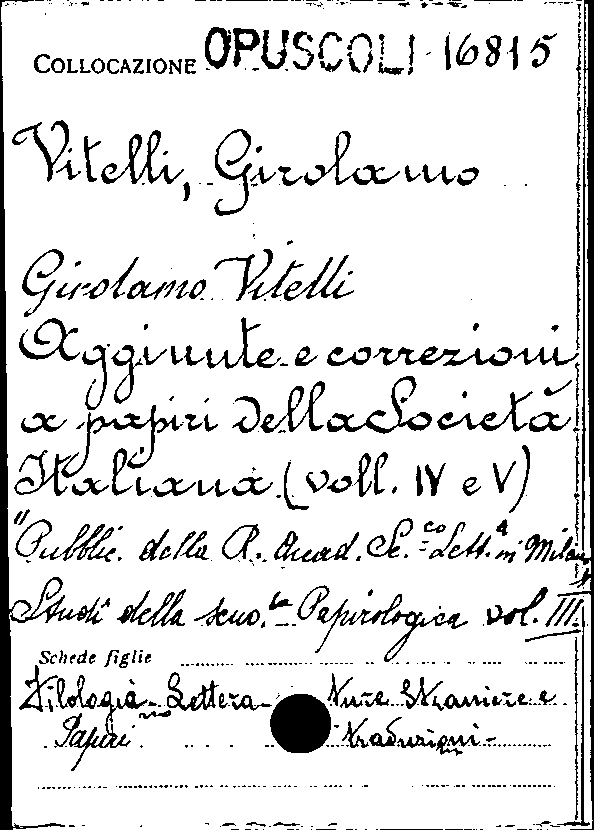 COLLOCAZIONE OPUSCOLI 16815
Vitelli, Girolamo
Girolamo Vitelli
Aggiunte e correzioni
a papiri della Società
Italiana (voll. IV e V)
"Pubblic. della R. Accad. Sc.co Lett.a in Milano
Studi della scuo.la Papirologica vol. III.
Schede figlie
Filologia - Lettera-ture straniere e
Papiri traduzioni -